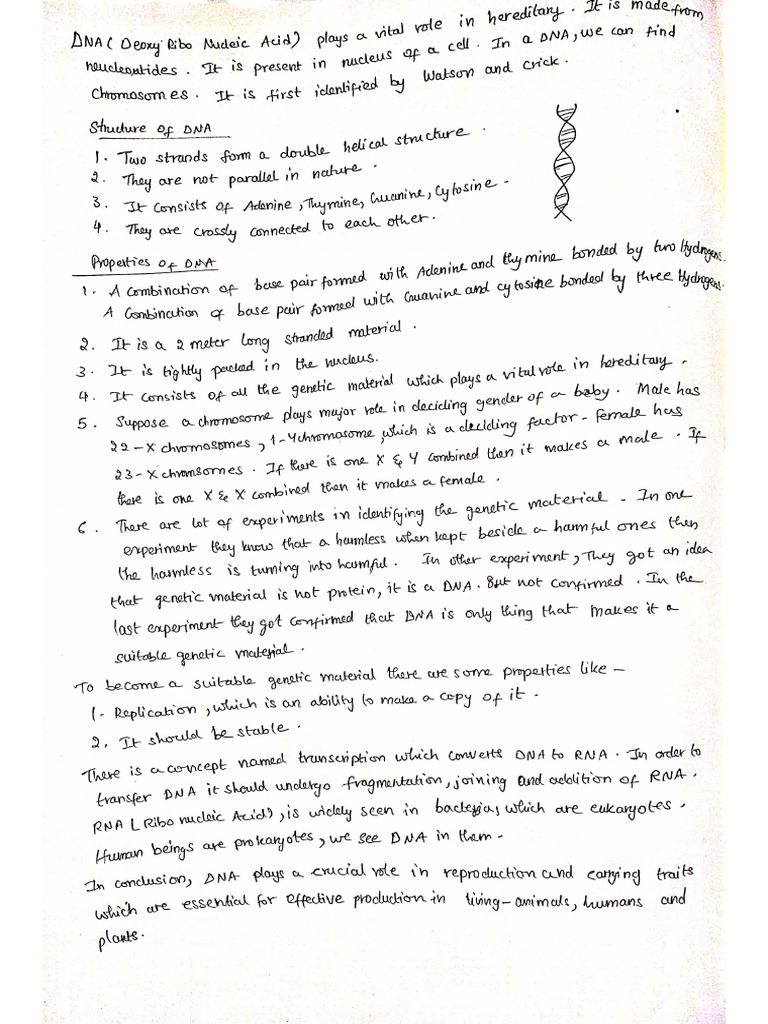 DNA ( Deoxy Ribo Nucleic Acid) plays a vital role in hereditary. It is made from
neucleoutides. It is present in nucleus of a cell. In a DNA, we can find
Chromosomes. It is first identified by Watson and Crick.
Structure of DNA
1. Two strands form a double helical structure.
2. They are not parallel in nature.
3. It consists of Adenine, Thymine, Guanine, Cytosine -
4. They are crossly connected to each other.
Properties of DNA
1. A Combination of base pair formed with Adenine and thymine bonded by two Hydrogens.
A Combination of base pair formed with Guanine and cytosine bonded by three Hydrogens.
2. It is a 2 meter long stranded material.
3. It is tightly packed in the nucleus.
4. It consists of all the genetic material which plays a vital role in hereditary.
5. Suppose a chromosome plays major role in deciding gender of a baby. Male has
22-X chromosomes, 1-Y chromosome which is a deciding factor - female has
23-X chromsomes. If there is one X & Y combined then it makes a male. If
there is one X & X combined then it makes a female.
6. There are lot of experiments in identifying the genetic material - In one
experiment they know that a harmless when kept beside a harmful ones then
the harmless is turning into harmful. In other experiment, They got an idea
that genetic material is not protein, it is a DNA. But not confirmed. In the
last experiment they got confirmed that DNA is only thing that makes it a
suitable genetic material.
To become a suitable genetic material there are some properties like -
1- Replication, which is an ability to make a copy of it.
2. It should be stable.
There is a concept named transcription which converts DNA to RNA. In order to
transfer DNA it should undergo fragmentation, joining and addition of RNA.
RNA (Ribo nucleic Acid), is widely seen in bacteria, which are eukaryotes.
Human beings are prokaryotes, we see DNA in them -
In conclusion, DNA plays a crucial role in reproduction and carrying traits
which are essential for effective production in living-animals, humans and
plants.